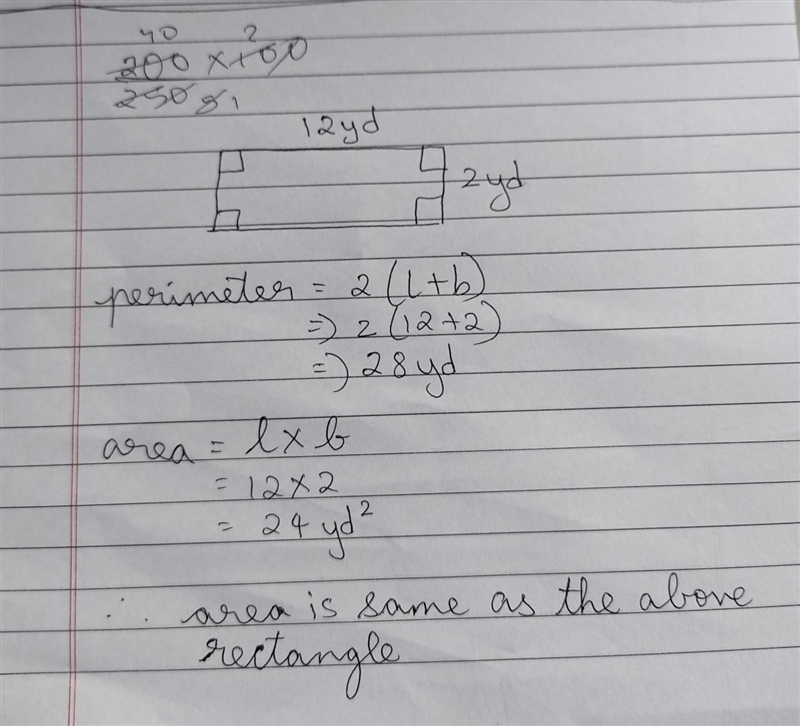 40 2
200 x 100
250 5 1
12yd
2yd
perimeter = 2(l+b)
=) 2(12+2)
=) 28yd
area = l x b
= 12 x 2
= 24 yd²
∴ area is same as the above
rectangle